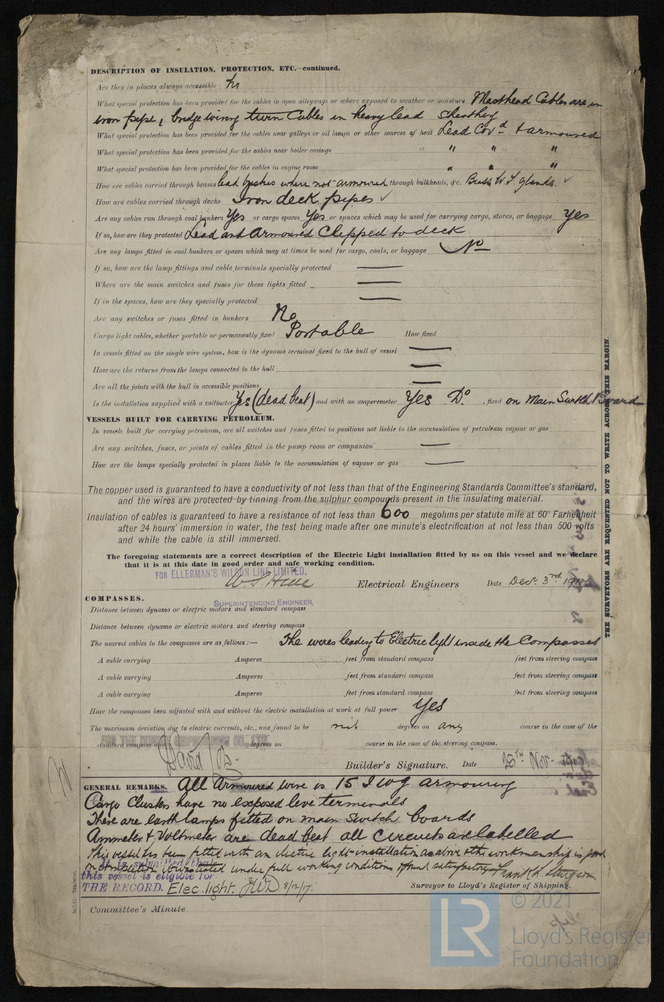 DESCRIPTION OF INSULATION, PROTECTION, ETC.—continued.
Are they in places always accessible
What special protection has been provided for the cables in open alleyways or where exposed to weather or moisture Masthead Cables are in
iron pipe, bridge wiring twin Cables in heavy lead sheathing
What special protection has been provided for the cables near galleys or oil lamps or other sources of heat Lead Covd & armoured
What special protection has been provided for the cables near boiler casings " " "
What special protection has been provided for the cables in engine room " " "
How are cables carried through beams lead bushes where not armoured through bulkheads, &c. W.T. glands. ✓
How are cables carried through decks Iron deck pipes ✓
Are any cables run through coal bunkers Yes or cargo spaces Yes or spaces which may be used for carrying cargo, stores, or baggage Yes
If so, how are they protected Lead and Armoured Clipped to deck
Are any lamps fitted in coal bunkers or spaces which may at times be used for cargo, coals, or baggage No
If so, how are the lamp fittings and cable terminals specially protected —
Where are the main switches and fuses for these lights fitted —
If in the spaces, how are they specially protected —
Are any switches or fuses fitted in bunkers No
Cargo light cables, whether portable or permanently fixed Portable How fixed
In vessels fitted on the single wire system, how is the dynamo terminal fixed to the hull of vessel —
How are the returns from the lamps connected to the hull —
Are all the joints with the hull in accessible positions —
Is the installation supplied with a voltmeter Yes (dead beat) and with an amperemeter Yes Do. , fixed on Main Switch Board
VESSELS BUILT FOR CARRYING PETROLEUM.
In vessels built for carrying petroleum, are all switches and fuses fitted in positions not liable to the accumulation of petroleum vapour or gas
Are any switches, fuses, or joints of cables fitted in the pump room or companion —
How are the lamps specially protected in places liable to the accumulation of vapour or gas —
The copper used is guaranteed to have a conductivity of not less than that of the Engineering Standards Committee's standard,
and the wires are protected by tinning from the sulphur compounds present in the insulating material.
Insulation of cables is guaranteed to have a resistance of not less than 600 megohms per statute mile at 60° Farhenheit
after 24 hours' immersion in water, the test being made after one minute's electrification at not less than 500 volts
and while the cable is still immersed.
The foregoing statements are a correct description of the Electric Light installation fitted by us on this vessel and we declare
that it is at this date in good order and safe working condition.
FOR ELLERMAN'S WILSON LINE LIMITED,
Electrical Engineers Date Decr 3rd
SUPERINTENDING ENGINEER,
COMPASSES.
Distance between dynamo or electric motors and standard compass
Distance between dynamo or electric motors and steering compass
The nearest cables to the compasses are as follows:— The wires leading to Electric light inside the Compasses
A cable carrying Amperes feet from standard compass feet from steering compass
A cable carrying Amperes feet from standard compass feet from steering compass
A cable carrying Amperes feet from standard compass feet from steering compass
Have the compasses been adjusted with and without the electric installation at work at full power Yes
The maximum deviation due to electric currents, etc., was found to be nil degrees on any course in the case of the
standard compass and degrees on course in the case of the steering compass.
Builder's Signature. Date 25th Nov-
GENERAL REMARKS. All Armoured wire is 15 I W G armouring
Cargo Clusters have no exposed live terminals
There are earth lamps fitted on main switch boards
Ammeter & Voltmeter are dead beat all circuits are labelled
This vessel has been fitted with an electric light installation as above & the workmanship is good
under full working conditions & found satisfactory
It is submitted that
this vessel is eligible for
THE RECORD. Elec. light. 8/2/17.
Surveyor to Lloyd's Register of Shipping.
Committee's Minute
THE SURVEYORS ARE REQUESTED NOT TO WRITE ACROSS THIS MARGIN.
LR
© 2021
Lloyd's Register
Foundation